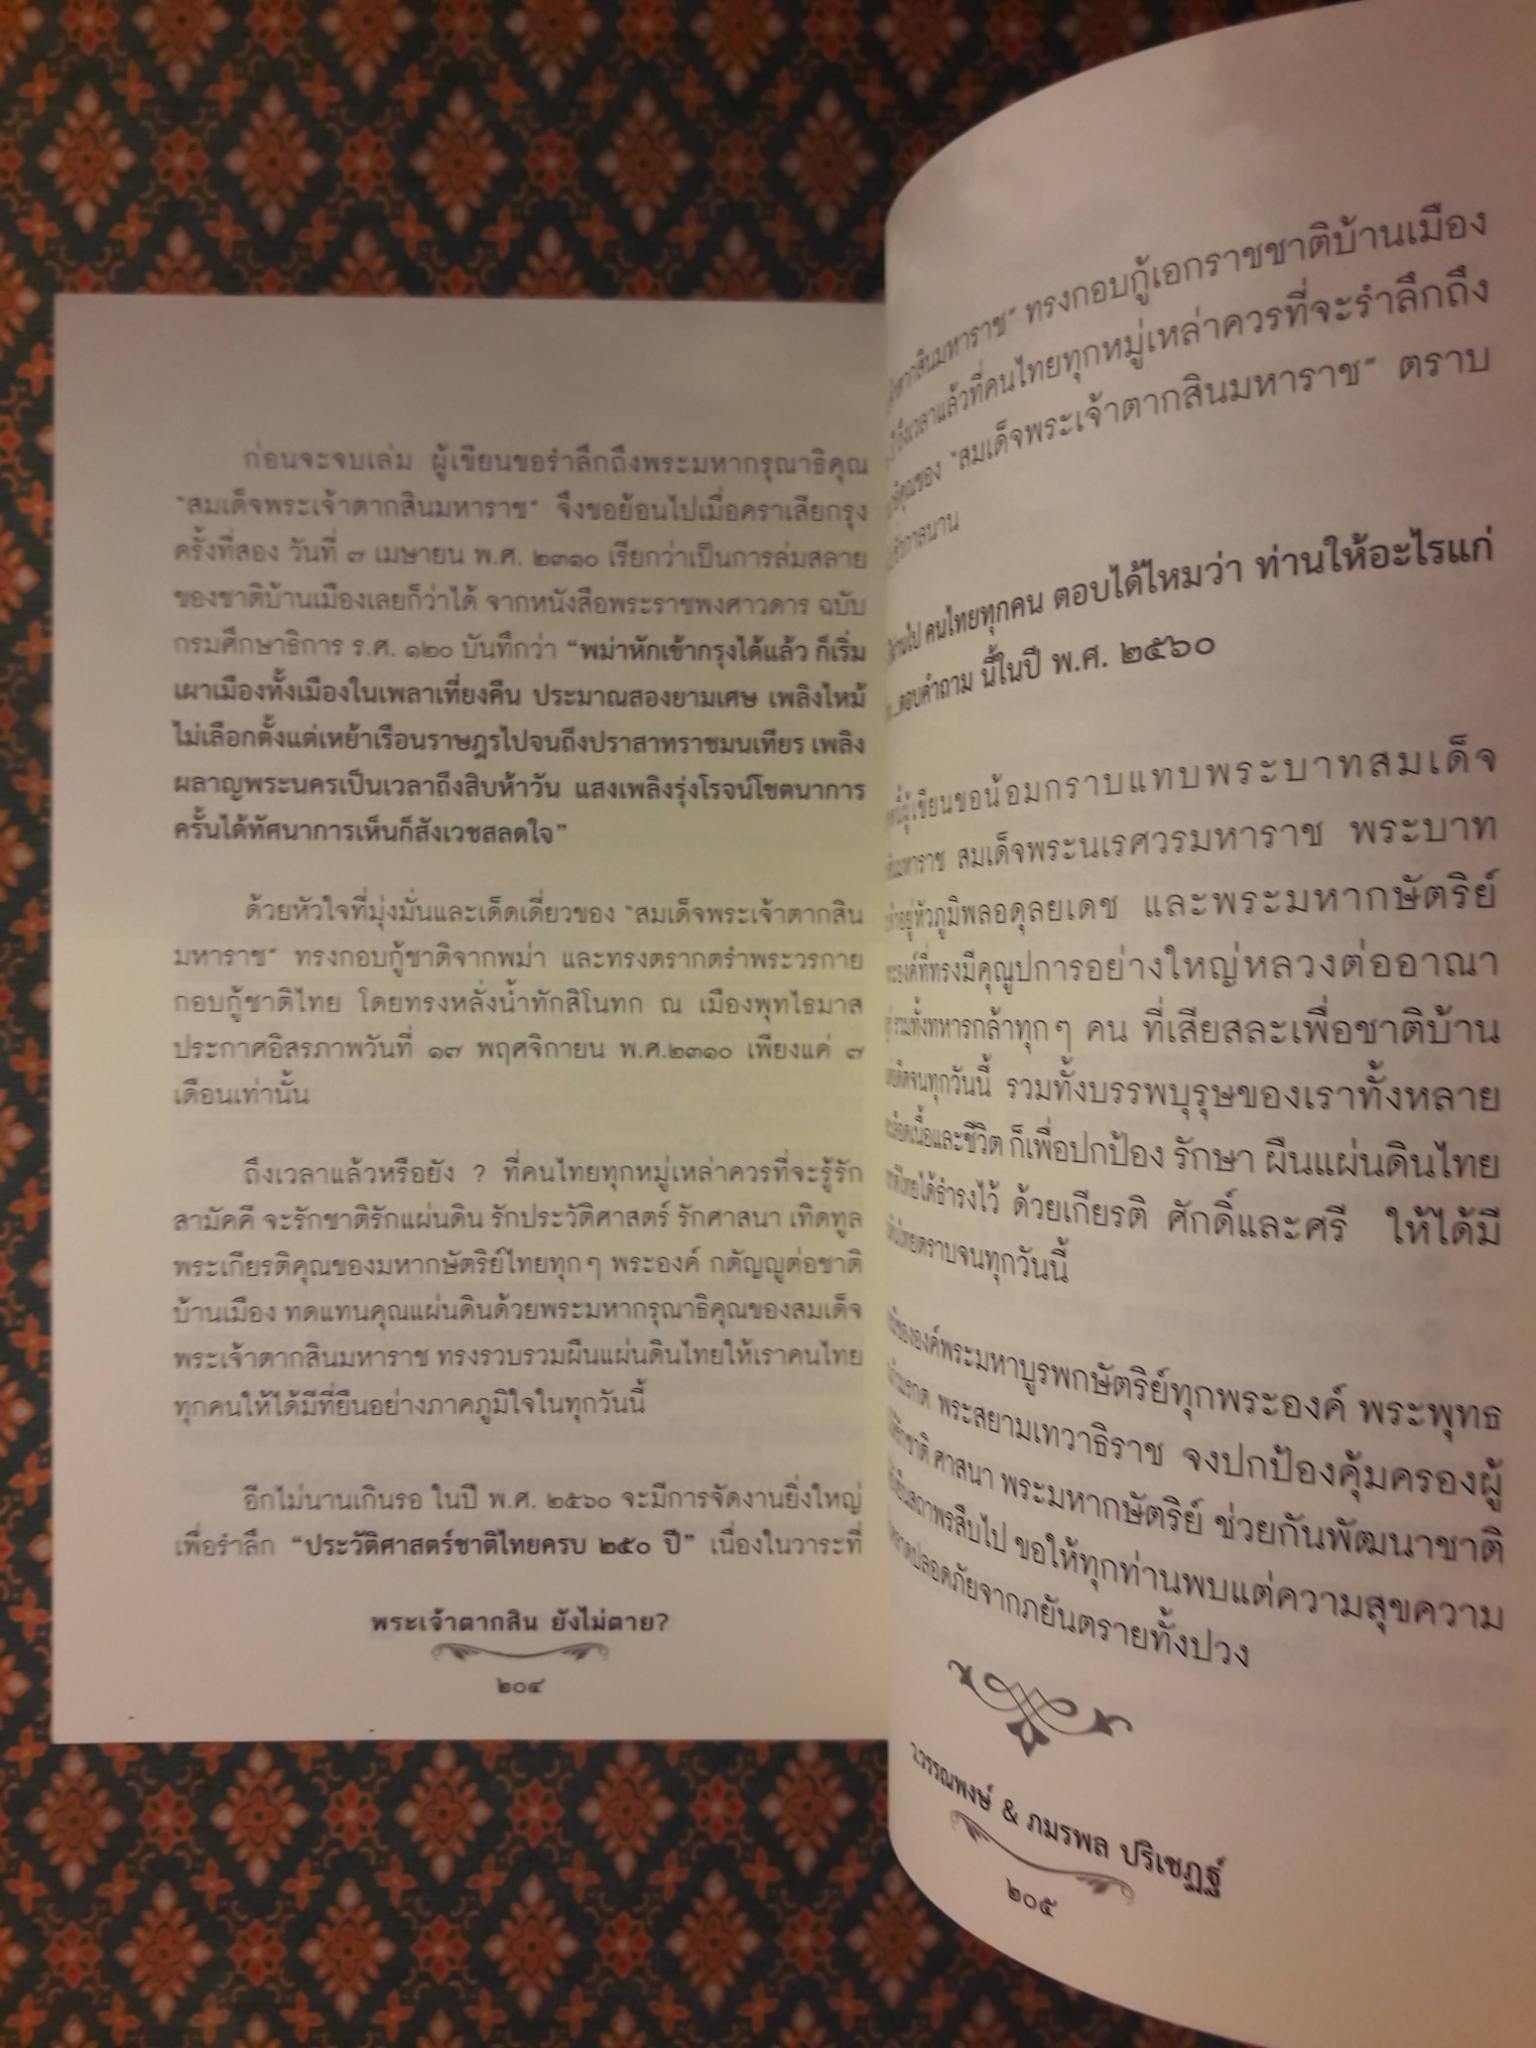 ก่อนจะจบเล่ม ผู้เขียนขอรำลึกถึงพระมหากรุณาธิคุณ
"สมเด็จพระเจ้าตากสินมหาราช" จึงขอย้อนไปเมื่อคราเสียกรุง
ครั้งที่สอง วันที่ ๗ เมษายน พ.ศ. ๒๓๑๐ เรียกว่าเป็นการล่มสลาย
ของชาติบ้านเมืองเลยก็ว่าได้ จากหนังสือพระราชพงศาวดาร ฉบับ
กรมศึกษาธิการ ร.ศ. ๑๒๐ บันทึกว่า "พม่าหักเข้ากรุงได้แล้ว ก็เริ่ม
เผาเมืองทั้งเมืองในเพลาเที่ยงคืน ประมาณสองยามเศษ เพลิงไหม้
ไม่เลือกตั้งแต่เหย้าเรือนราษฎรไปจนถึงปราสาทราชมนเทียร เพลิง
ผลาญพระนครเป็นเวลาถึงสิบห้าวัน แสงเพลิงรุ่งโรจน์โชตนาการ
ครั้นได้ทัศนาการเห็นก็สังเวชสลดใจ"
ด้วยหัวใจที่มุ่งมั่นและเด็ดเดี่ยวของ "สมเด็จพระเจ้าตากสิน
มหาราช" ทรงกอบกู้ชาติจากพม่า และทรงตรากตรำพระวรกาย
กอบกู้ชาติไทย โดยทรงหลั่งน้ำทักสิโนทก ณ เมืองพุทไธมาส
ประกาศอิสรภาพวันที่ ๑๗ พฤศจิกายน พ.ศ.๒๓๑๐ เพียงแค่ ๗
เดือนเท่านั้น
ถึงเวลาแล้วหรือยัง ? ที่คนไทยทุกหมู่เหล่าควรที่จะรู้รัก
สามัคคี จะรักชาติรักแผ่นดิน รักประวัติศาสตร์ รักศาสนา เทิดทูล
พระเกียรติคุณของมหากษัตริย์ไทยทุกๆ พระองค์ กตัญญูต่อชาติ
บ้านเมือง ทดแทนคุณแผ่นดินด้วยพระมหากรุณาธิคุณของสมเด็จ
พระเจ้าตากสินมหาราช ทรงรวบรวมผืนแผ่นดินไทยให้เราคนไทย
ทุกคนให้ได้มีที่ยืนอย่างภาคภูมิใจในทุกวันนี้
อีกไม่นานเกินรอ ในปี พ.ศ. ๒๕๖๐ จะมีการจัดงานยิ่งใหญ่
เพื่อรำลึก "ประวัติศาสตร์ชาติไทยครบ ๒๕๐ ปี" เนื่องในวาระที่
พระเจ้าตากสิน ยังไม่ตาย?
๒๐๔
ตากสินมหาราช" ทรงกอบกู้เอกราชชาติบ้านเมือง
ถึงเวลาแล้วที่คนไทยทุกหมู่เหล่าควรที่จะรำลึกถึง
ของ "สมเด็จพระเจ้าตากสินมหาราช" ตราบ
กาลนาน
คนไทยทุกคน ตอบได้ไหมว่า ท่านให้อะไรแก่
ตอบคำถาม นี้ในปี พ.ศ. ๒๕๖๐
ผู้เขียนขอน้อมกราบแทบพระบาทสมเด็จ
มหาราช สมเด็จพระนเรศวรมหาราช พระบาท
อยู่หัวภูมิพลอดุลยเดช และพระมหากษัตริย์
ที่ทรงมีคุณูปการอย่างใหญ่หลวงต่ออาณา
รวมทั้งทหารกล้าทุกๆ คน ที่เสียสละเพื่อชาติบ้าน
จนทุกวันนี้ รวมทั้งบรรพบุรุษของเราทั้งหลาย
เลือดเนื้อและชีวิต ก็เพื่อปกป้อง รักษา ผืนแผ่นดินไทย
ไทยได้ธำรงไว้ ด้วยเกียรติ ศักดิ์และศรี ให้ได้มี
ไทยตราบจนทุกวันนี้
ขององค์พระมหาบูรพกษัตริย์ทุกพระองค์ พระพุทธ
พระสยามเทวาธิราช จงปกป้องคุ้มครองผู้
ชาติ ศาสนา พระมหากษัตริย์ ช่วยกันพัฒนาชาติ
สืบไป ขอให้ทุกท่านพบแต่ความสุขความ
ปลอดภัยจากภยันตรายทั้งปวง
ว.วรรณพงษ์ & ภมรพล ปริเชฏฐ์
๒๐๕